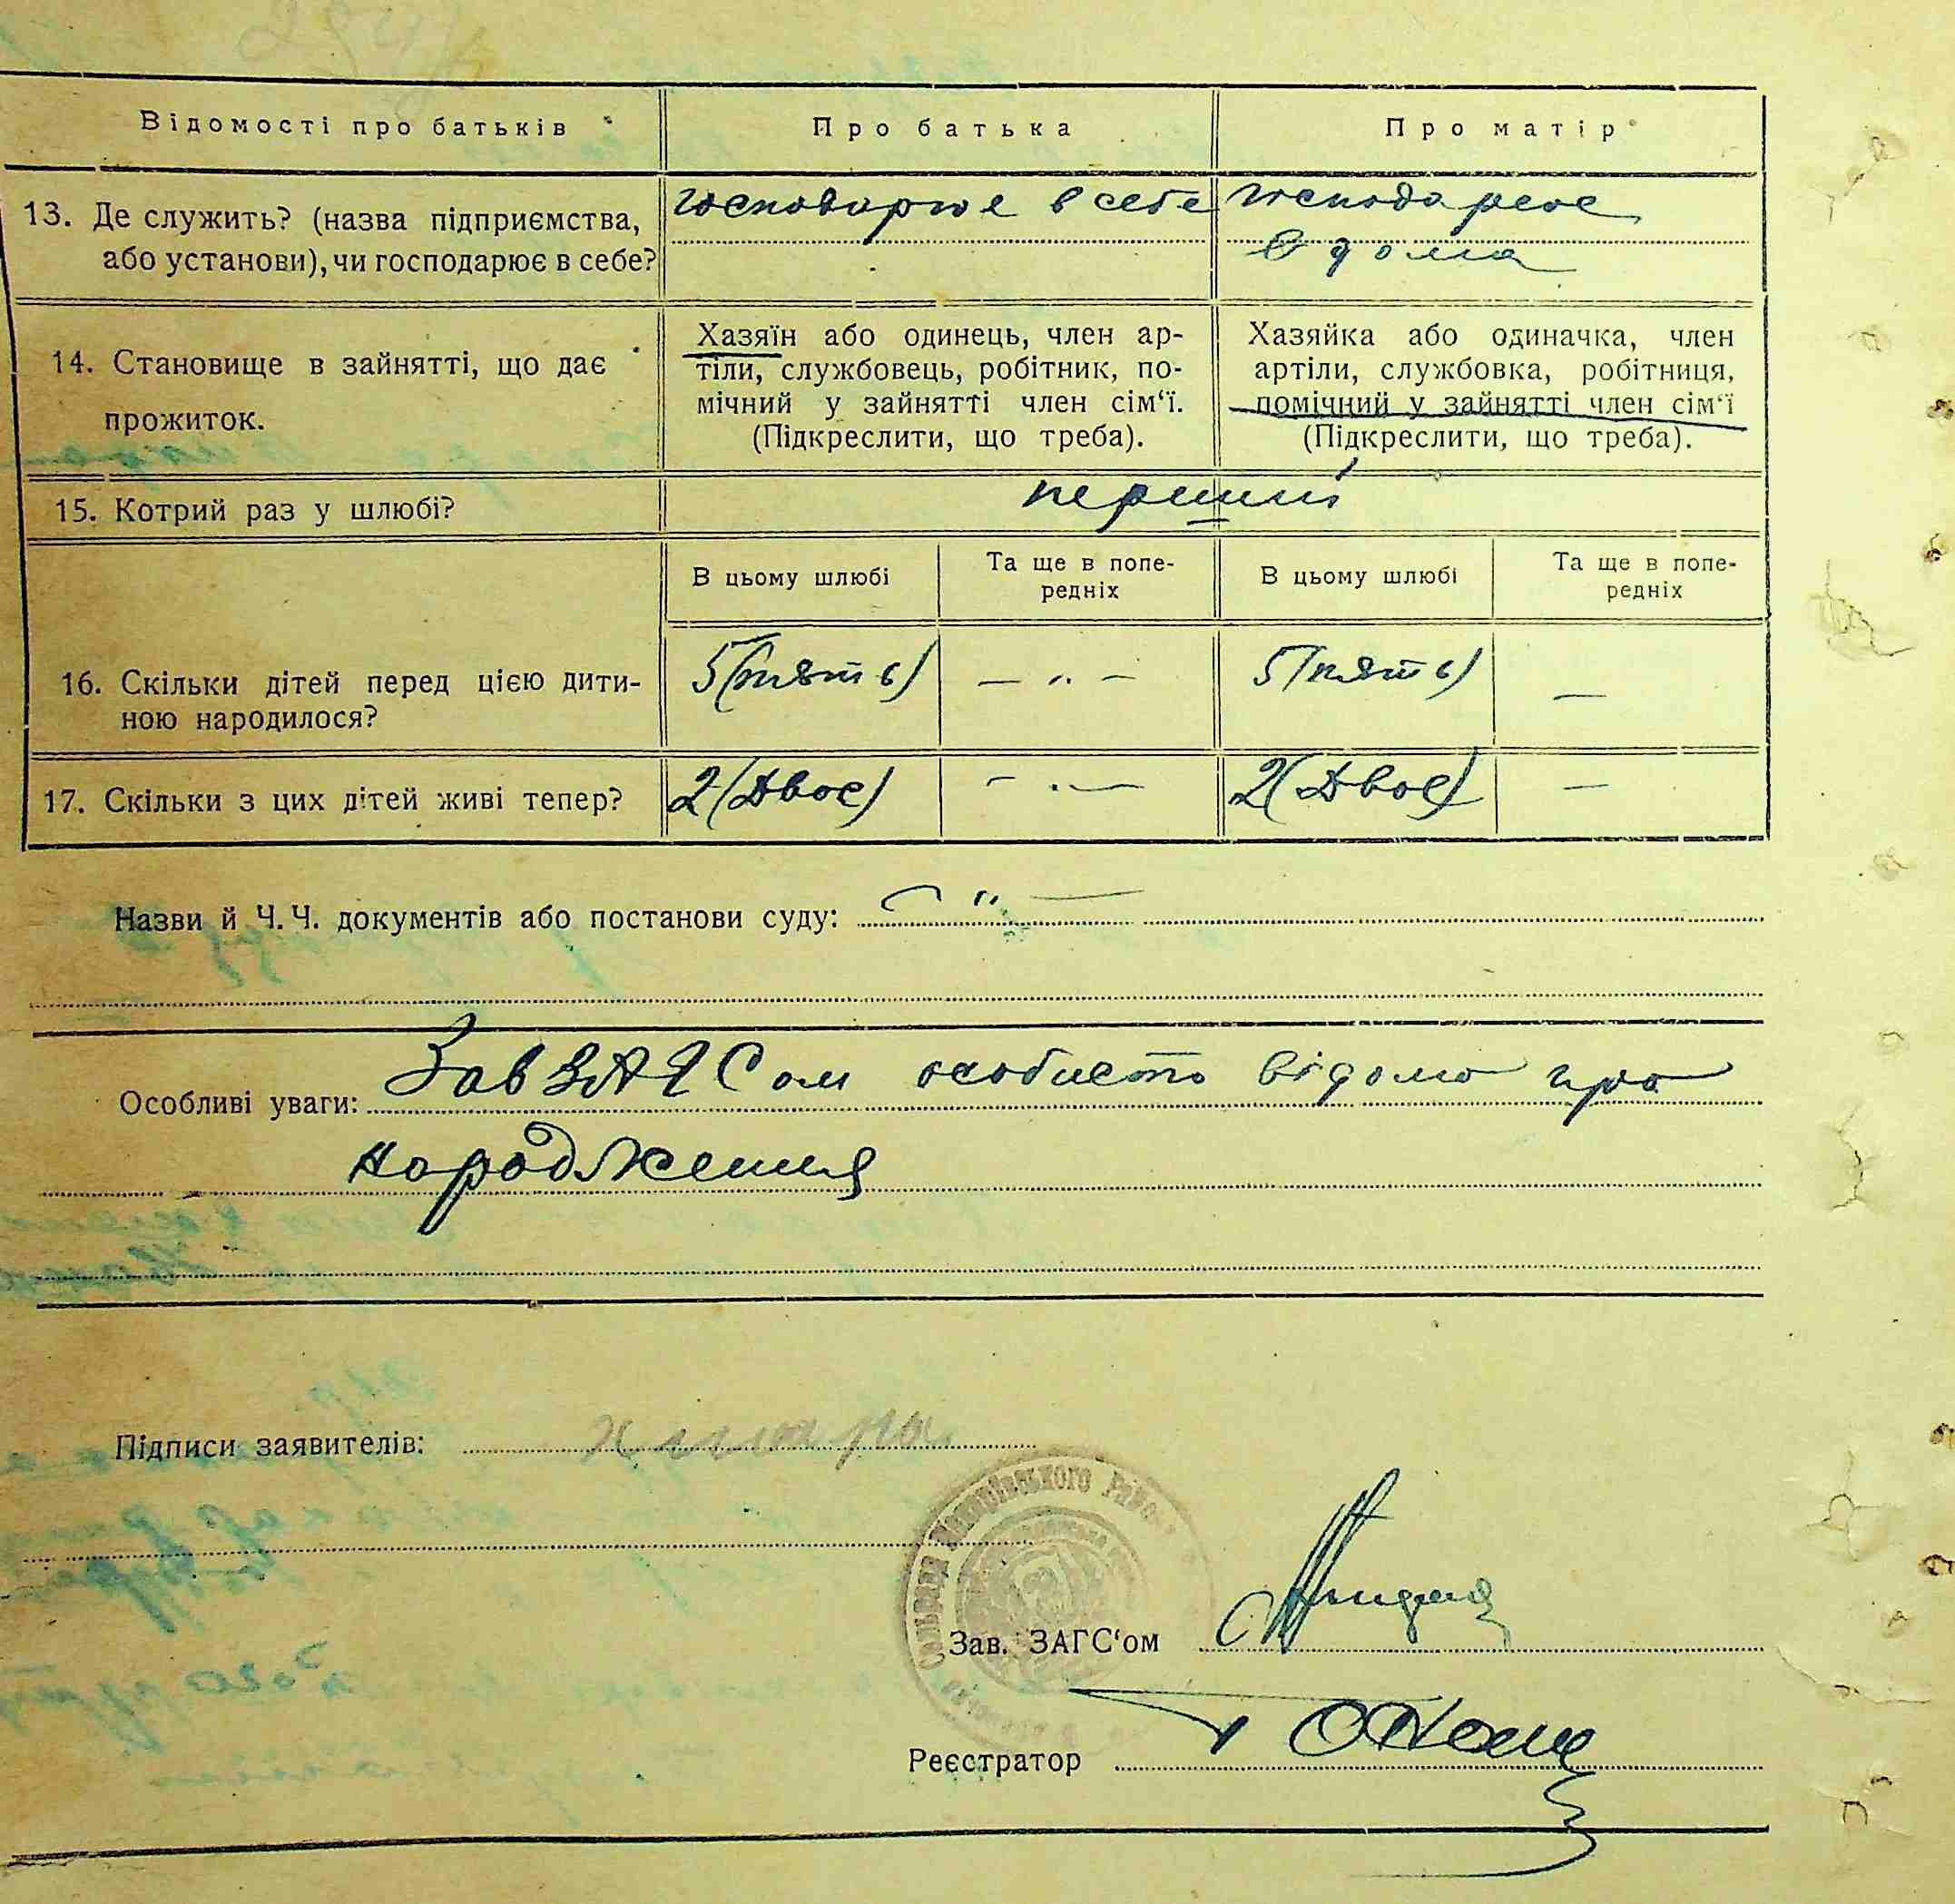 Відомості про батьків
Про батька
Про матір
13. Де служить? (назва підприємства,
або установи), чи господарює в себе?
господарює в себе
господарює
в дома
14. Становище в зайнятті, що дає
прожиток.
Хазяїн або одинець, член ар-
тіли, службовець, робітник, по-
мічний у зайнятті член сім‘ї.
(Підкреслити, що треба).
Хазяйка або одиначка, член
артіли, службовка, робітниця,
помічний у зайнятті член сім‘ї
(Підкреслити, що треба).
15. Котрий раз у шлюбі?
перший
В цьому шлюбі
Та ще в попе-
редніх
В цьому шлюбі
Та ще в попе-
редніх
16. Скільки дітей перед цією дити-
ною народилося?
5 (пять)
— „ —
5 (пять)
—
17. Скільки з цих дітей живі тепер?
2 (Двоє)
— „ —
2 (Двоє)
—
Назви й Ч. Ч. документів або постанови суду: — „ —
Особливі уваги: Зав ЗАГСом особисто відомо про
народження
Підписи заявителів:
Зав. ЗАГС‘ом
Реєстратор